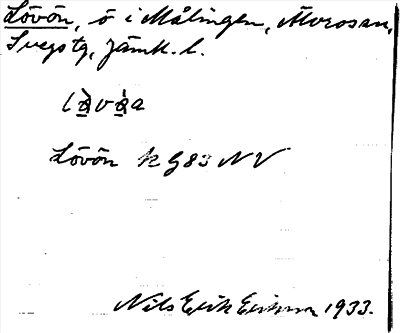 Lövön, ö i Målingen, Älvrosan,
Svegs tg, Jämtl. l.
Lövön k G83 NV
Nils Erik Eriksson 1933.